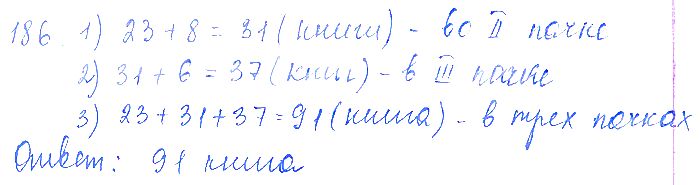 186 1) 23 + 8 = 31 (книги) - во II пачке
2) 31 + 6 = 37 (книг) - в III пачке
3) 23 + 31 + 37 = 91 (книга) - в трех пачках
Ответ: 91 книга